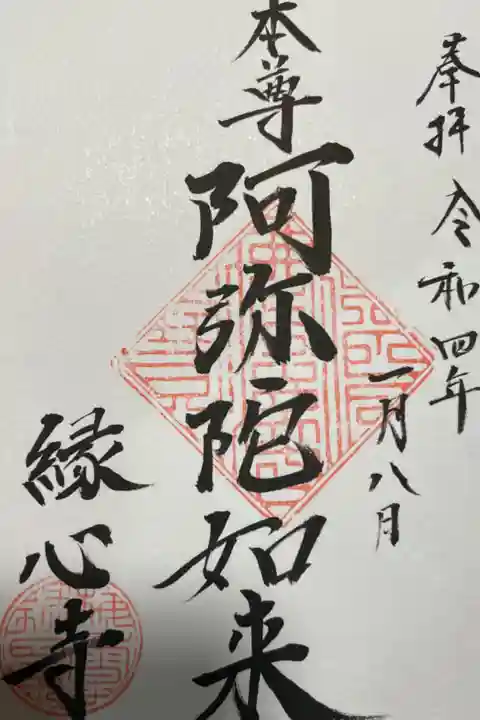 奉拝 令和四年
一月八月
本尊 阿弥陀如来
縁心寺